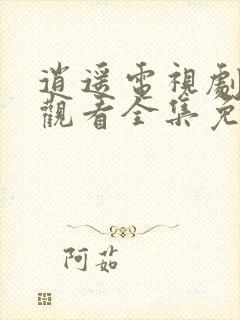 逍遥電視劇
觀看全集免
阿茹